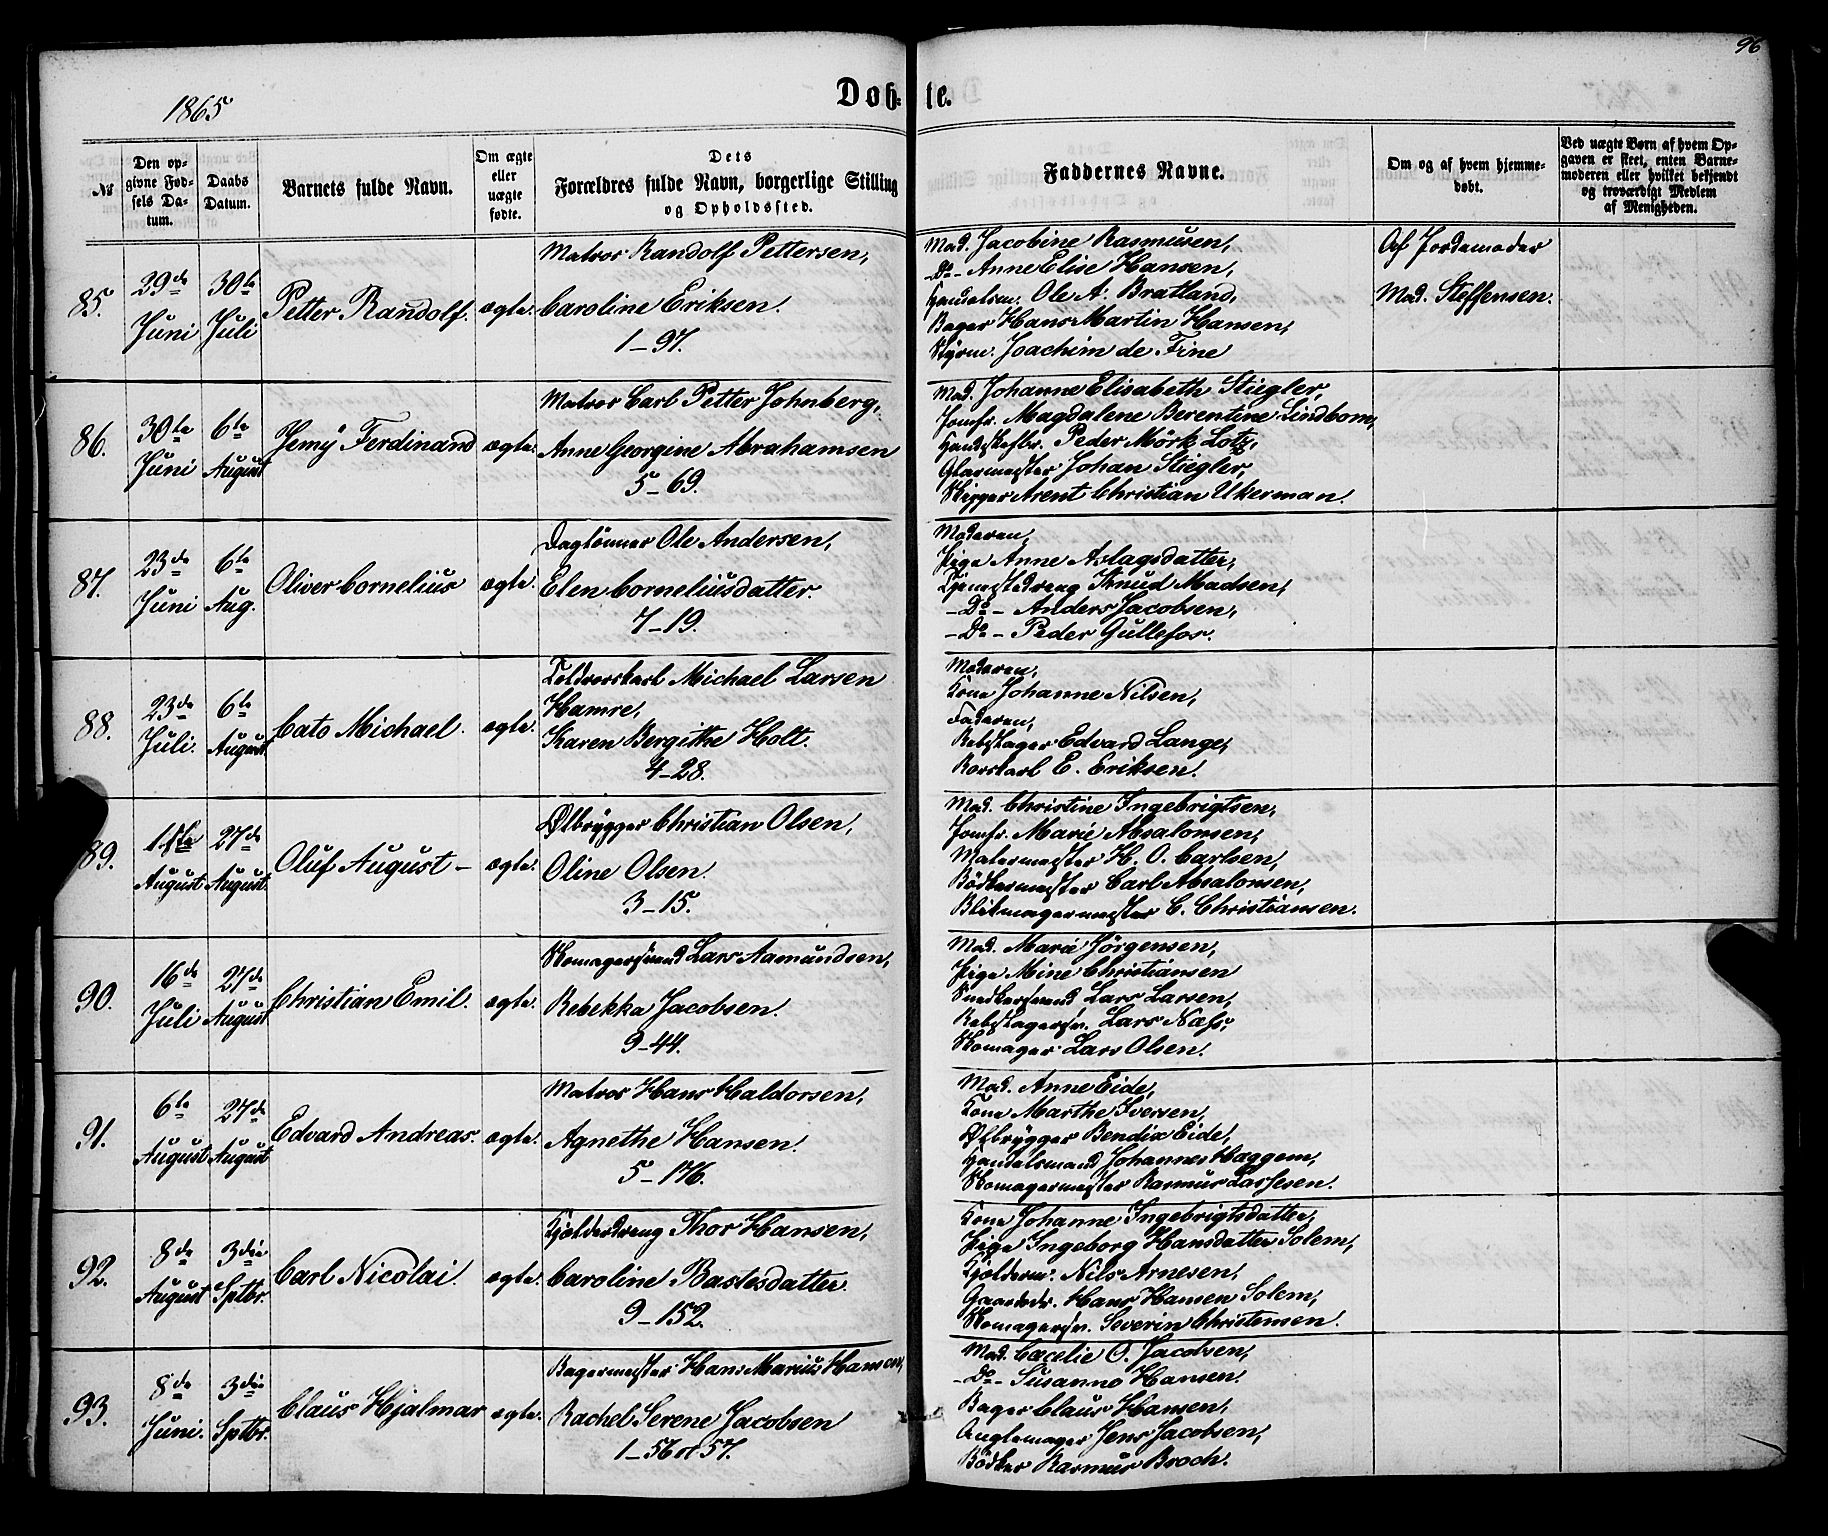 96
1865
Døb- te.
№
Den op-
givne Fød-
sels Da-
tum.
Daabs
Datum.
Barnets fulde Navn.
Om ægte
eller
uægte
fødte.
Dets
Forældres fulde Navn, borgerlige Stilling
og Opholdssted.
Faddernes Navne.
Om og af hvem hjemme-
døbt.
Ved uægte Børn af hvem Op-
gaven er skeet, enten Barne-
moderen eller hvilket bekjendt
og troværdigt Medlem
af Menigheden.
85.
29de
Juni
30te
Juli
Petter Randolf.
ægte.
Matros Randolf Pettersen,
Caroline Eriksen.
1-97.
Mad. Jacobine Rasmusen,
-Do- Anne Elise Hansen,
Handelsm. Ole A. Bratland,
Bager Hans Martin Hansen,
Styrm. Joachim de Fine
Af Jordemoder
Mad. Steffensen.
86.
30te
Juni
6te
August
Jemy Ferdinand
ægte.
Matros Carl Petter Johnberg,
Anne Georgine Abrahamsen
5-69.
Mad. Johanne Elisabeth Stiegler,
Jomfr. Magdalene Berentine Lindbom,
Peder Mörk Lotz,
Glarmester Johan Stiegler,
Skipper Arent Christian Ukerman.
87.
23de
Juni
6te
Aug.
Oliver Cornelius
ægte.
Daglönner Ole Andersen,
Elen Corneliusdatter.
7-19.
Moderen,
Pige Anne Aslagsdatter,
Tjenestedreng Knud Madsen,
-Do- Anders Jacobsen,
-Do- Peder Gullefos.
88.
23de
Juli.
6te
August
Cato Michael.
ægte.
Toldroerskarl Michael Larsen
Hamre,
Karen Bergithe Holt.
4-28.
Moderen,
Kone Johanne Nilsen,
Faderen,
Rebslager Edvard Lange,
Rorskarl E. Eriksen.
89.
11te
August
27de
August.
Oluf August -
ægte.
Ølbrygger Christian Olsen,
Oline Olsen.
3-15.
Mad. Christine Ingebrigtsen,
Jomfr. Marie Absalonsen,
Malermester H. O. Carlsen,
Bödkermester Carl Absalonsen,
Blikmagermester C. Christiansen.
90.
16de
Juli
27de
August
Christian Emil.
ægte.
Skomagersvend Lars Aamundsen,
Rebekka Jacobsen.
9-44.
Mad. Marie Jörgensen,
Pige Mine Christiansen
Snedkersvend Lars Larsen,
Rebslagersv. Lars Næss,
Skomager Lars Olsen.
91.
6te
August
27de
August
Edvard Andreas.
ægte.
Matros Hans Haldorsen,
Agnethe Hansen.
5-176.
Mad. Anne Eide,
Kone Marthe Iversen,
Ølbrygger Bendix Eide,
Handelsmand Johannes Haggem,
Skomagermester Rasmus Lassesen.
92.
8de
August
3die
Sptbr.
Carl Nicolai.
ægte.
Kjælderdreng Thor Hansen,
Caroline Bastesdatter.
9-152.
Kone Johanne Ingebrigtsdatter,
Pige Ingeborg Hansdatter Solem,
Kjælderm. Nils Arnesen,
Hans Hansen Solem,
Skomagersv. Severin Christensen.
93.
8de
Juni.
3die
Sptbr.
Claus Hjalmar
ægte.
Bagermester Hans Marius Hansen,
Rachel Serene Jacobsen
1-56 & 57.
Mad. Cæcelie O. Jacobsen,
-Do- Susanne Hansen,
Bager Claus Hansen,
Anglemager Jens Jacobsen,
Bödker Rasmus Broch.